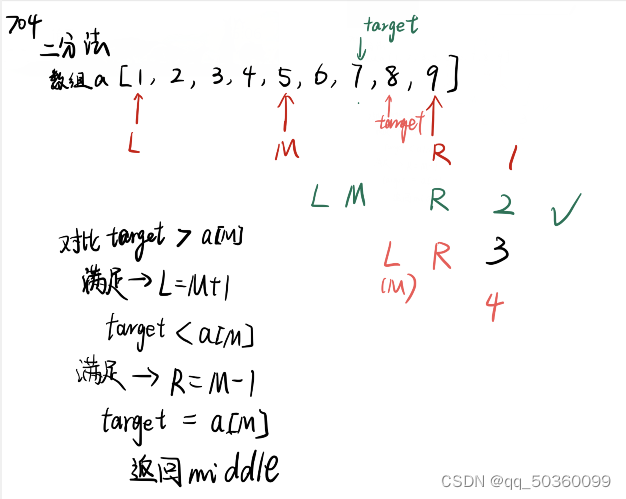 704
二分法
target
数组a [1, 2, 3, 4, 5, 6, 7, 8, 9]
target
L M R 1
L M R 2
L R 3
(M)
4
对比 target > a[M]
满足→L=M+1
target < a[M]
满足→R=M-1
target = a[M]
返回middle
CSDN @qq_50360099